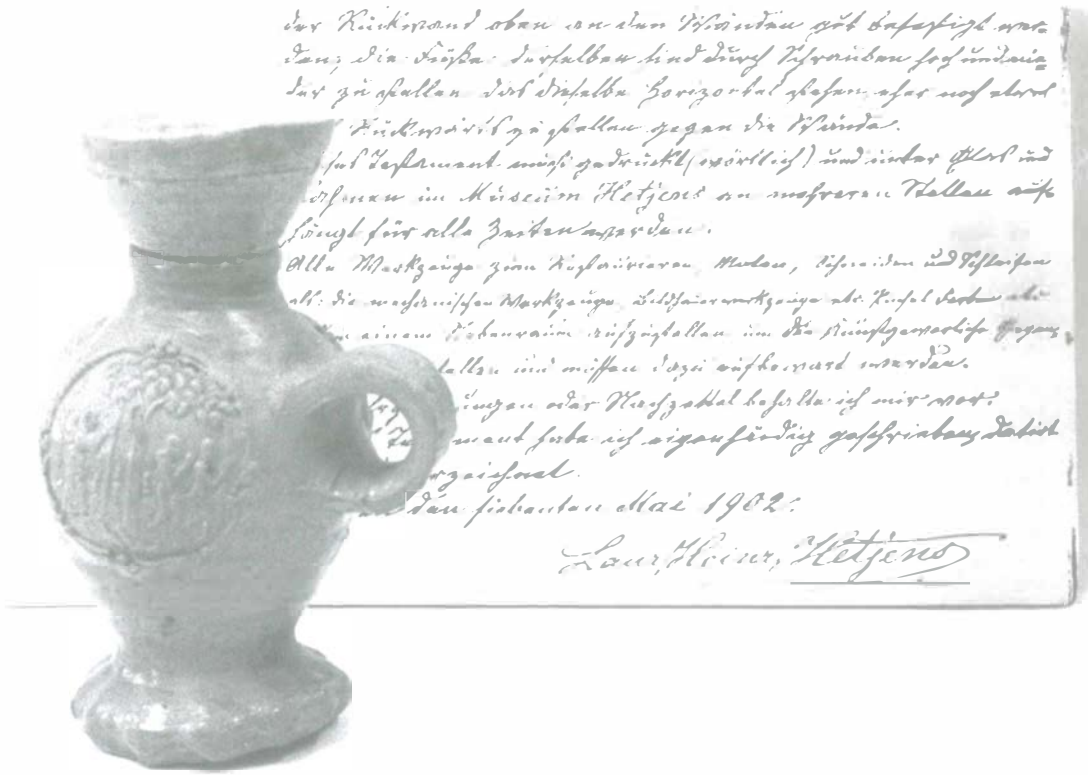 der Rückwand oben an den Wänden gut befestigt wer-
den; die Füße derselben sind durch Schrauben hoch und nie=
der zu stellen das dieselbe horizontal stehen eher noch etwas
Rückwärts zu stellen gegen die Wände.
ses Testament muß gedruckt (wörtlich) und unter Glas und
ahmen im Museum Hetjens an mehreren Stellen auf=
hängt für alle Zeiten werden.
Alle Werkzeuge zum Restaurieren Malen, Schneiden und Schleifen
als: die mechanischen Werkzeuge Bildhauerwerkzeuge etc. Pinsel
einem Nebenraum aufzustellen um die kunstgewerbliche Gegen
tellen und müssen dazu aufbewart werden.
ungen oder Nachzettel behalte ich mir vor.
ment habe ich eigenhändig geschrieben, datirt
rzeichnet.
den siebenten Mai 1902.
Laur, Heinr, Hetjens